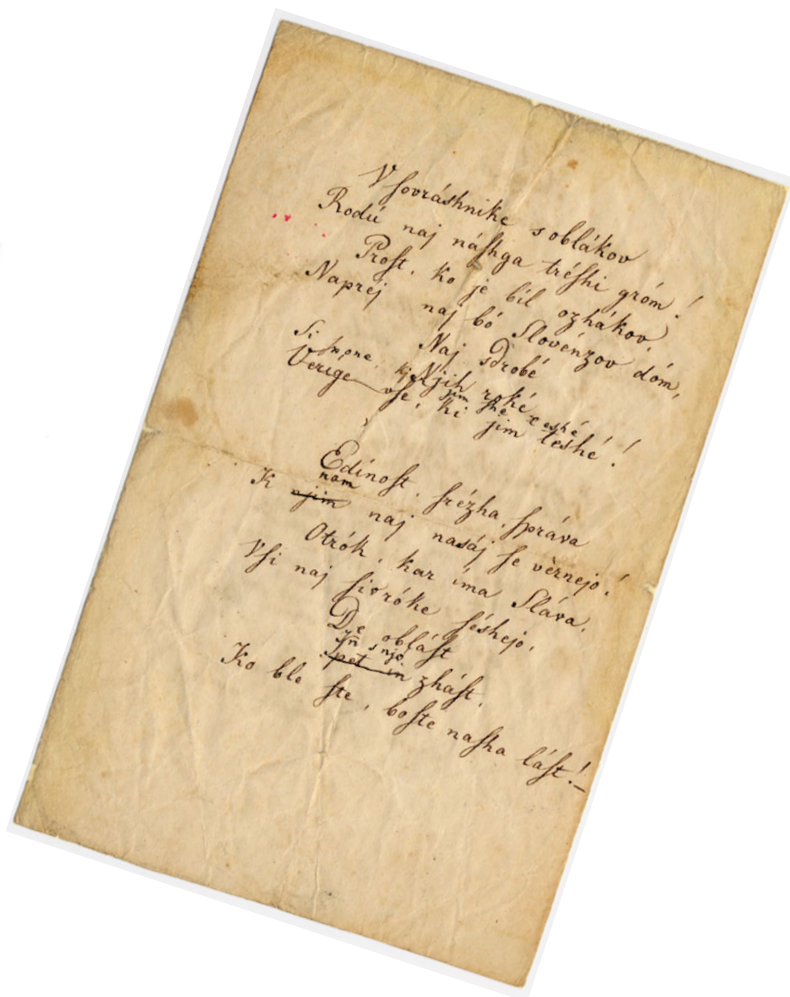 V ſovráshnike s oblákov
Rodú naj náſhga tréſhi gróm!
Proſt, ko je bil ozhákov,
Naprej naj bó Slovénzov dóm,
Naj sdrobé
Njih roké
Si ſpone, ki jim ſhe teshé
Verige vſe, ki jim teshé!
Edínoſt, ſrézha, ſpráva
nam
K njim naj nasáj ſe vèrnejo!
Otrók, kar íma Sláva,
Vſi naj ſi v róke ſéshejo,
De obláſt
In s njo
ſpet in zháſt,
Ko ble ſte, boſte naſha láſt!_